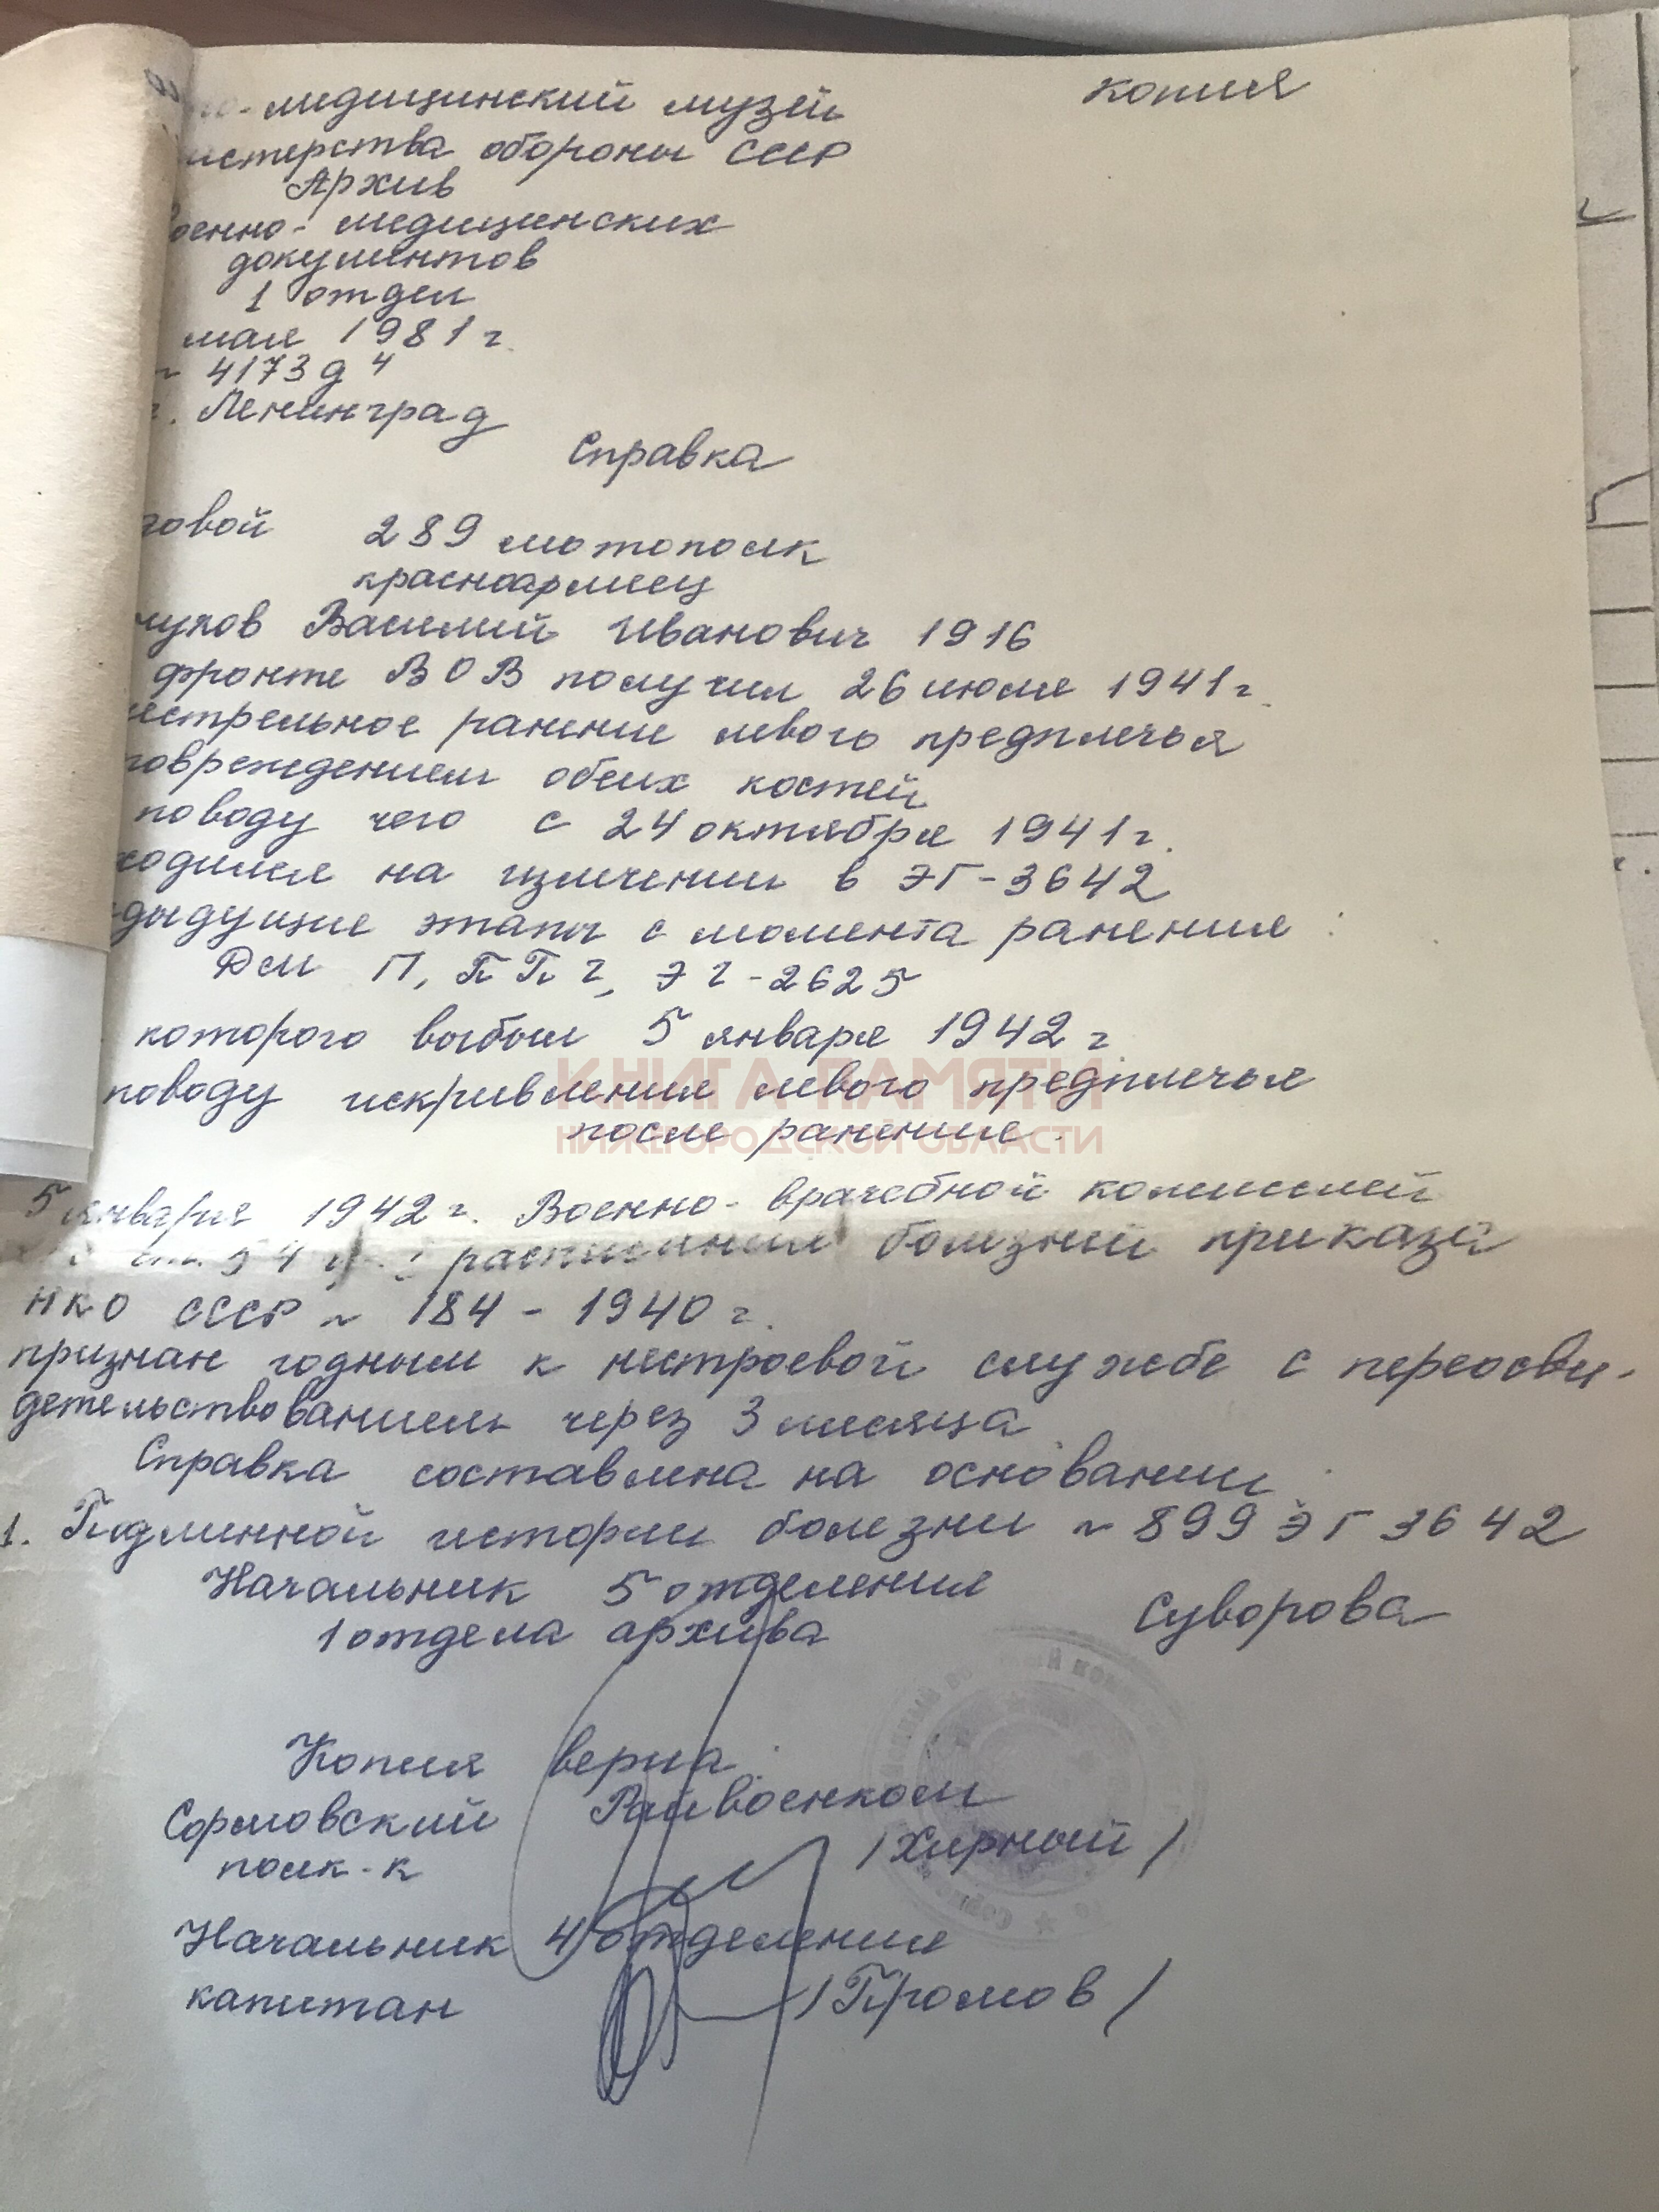 -медицинский музей
копия
истерства обороны СССР
Архив
военно-медицинских
документов
1 отдел
мая 1981 г.
~ 4173 д 4
г. Ленинград
Справка
довой 289 мотополк
красноармеец
Василий Иванович 1916
фронте ВОВ получил 26 июля 1941 г.
нестрельное ранение левого предплечья
повреждением обеих костей
поводу чего с 24 октября 1941 г.
ходился на излечении в ЭГ-3642
дыдущие этапы с момента ранения:
ДМ П, ППГ, ЭГ-2625
которого выбыл 5 января 1942 г.
поводу искривления левого предплечья
после ранения.
КНИГА ПАМЯТИ
НИЖЕГОРОДСКОЙ ОБЛАСТИ
5 января 1942 г. Военно-врачебной комиссией
расписания болезней приказа
НКО СССР ~ 184 - 1940 г.
признан годным к нестроевой службе с переосви-
детельствованием через 3 месяца.
Справка составлена на основании:
1. Подлинной истории болезни ~ 899 ЭГ 3642
Начальник 5 отделения
1 отдела архива
Суворова
Копия верна:
Сормовский Райвоенком
полк-к /Хирный/
Начальник 4 отделения
капитан /Громов/